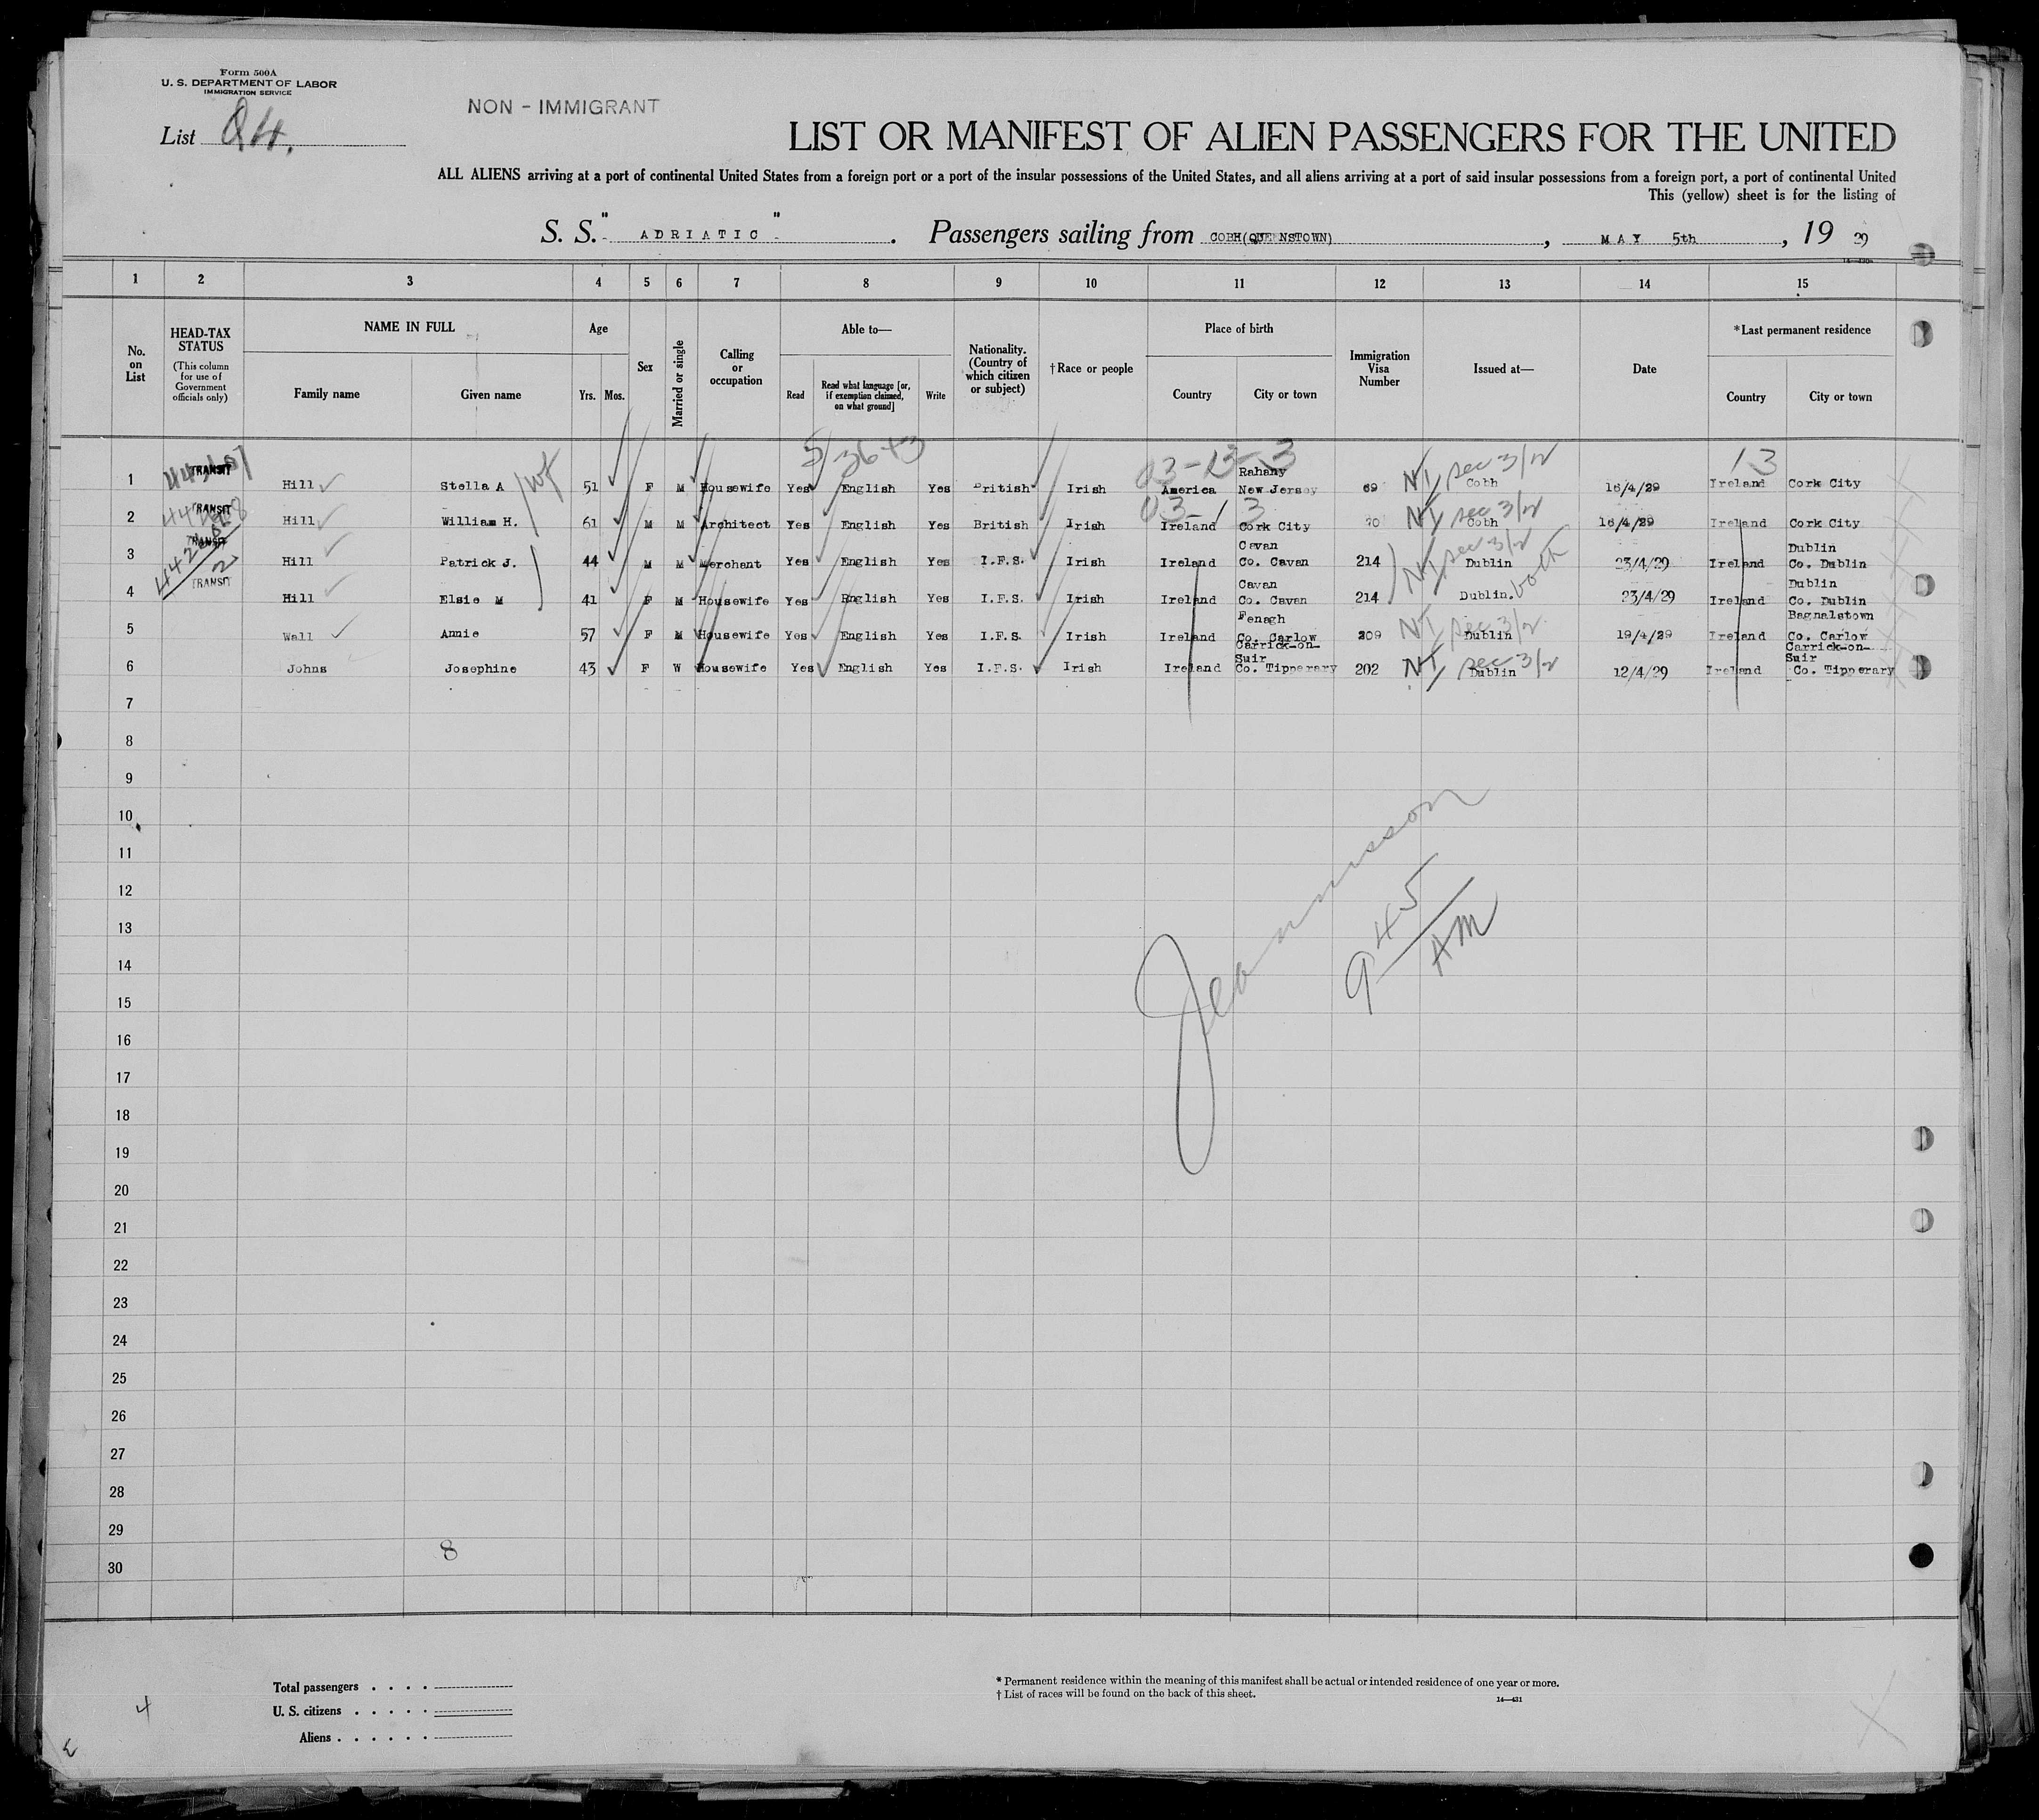 Form 500A
U. S. DEPARTMENT OF LABOR
IMMIGRATION SERVICE
NON - IMMIGRANT
List
LIST OR MANIFEST OF ALIEN PASSENGERS FOR THE UNITED
ALL ALIENS arriving at a port of continental United States from a foreign port or a port of the insular possessions of the United States, and all aliens arriving at a port of said insular possessions from a foreign port, a port of continental United
This (yellow) sheet is for the listing of
S. S. " ADRIATIC " . Passengers sailing from COBH(QUEENSTOWN) , MAY 5th , 19 29
1 2 3 4 5 6 7 8 9 10 11 12 13 14 15
No. on List
HEAD-TAX STATUS
(This column for use of Government officials only)
NAME IN FULL
Family name Given name
Age
Yrs. Mos.
Sex
Married or single
Calling or occupation
Able to—
Read Read what language [or, if exemption claimed, on what ground] Write
Nationality. (Country of which citizen or subject)
†Race or people
Place of birth
Country City or town
Immigration Visa Number
Issued at—
Date
*Last permanent residence
Country City or town
5/3643 03-13-3 13
1 TRANSIT Hill Stella A 51 F M Housewife Yes English Yes British Irish America Rahany New Jersey 69 NI sec 3/2 Cobh 16/4/29 Ireland Cork City
03-13
2 TRANSIT Hill William H. 61 M M Architect Yes English Yes British Irish Ireland Cork City 70 NI sec 3/2 Cobh 16/4/29 Ireland Cork City
3 TRANSIT Hill Patrick J. 44 M M Merchant Yes English Yes I.F.S. Irish Ireland Cavan Co. Cavan 214 NI sec 3/2 Dublin 23/4/29 Ireland Dublin Co. Dublin
4 TRANSIT Hill Elsie M 41 F M Housewife Yes English Yes I.F.S. Irish Ireland Cavan Co. Cavan 214 Dublin. both 23/4/29 Ireland Dublin Co. Dublin
5 Wall Annie 57 F M Housewife Yes English Yes I.F.S. Irish Ireland Fenagh Co. Carlow 209 NI sec 3/2 Dublin 19/4/29 Ireland Bagnalstown Co. Carlow
6 Johns Josephine 43 F W Housewife Yes English Yes I.F.S. Irish Ireland Carrick-on-Suir Co. Tipperary 202 NI sec 3/2 Dublin 12/4/29 Ireland Carrick-on-Suir Co. Tipperary
7
8
9
10
11
12
13
14
15
16
17
18
19
20
21
22
23
24
25
26
27
28
29
30
9 45 AM
8
Total passengers . . . .
U. S. citizens . . . . .
Aliens . . . . . .
* Permanent residence within the meaning of this manifest shall be actual or intended residence of one year or more.
† List of races will be found on the back of this sheet.
14—431
4